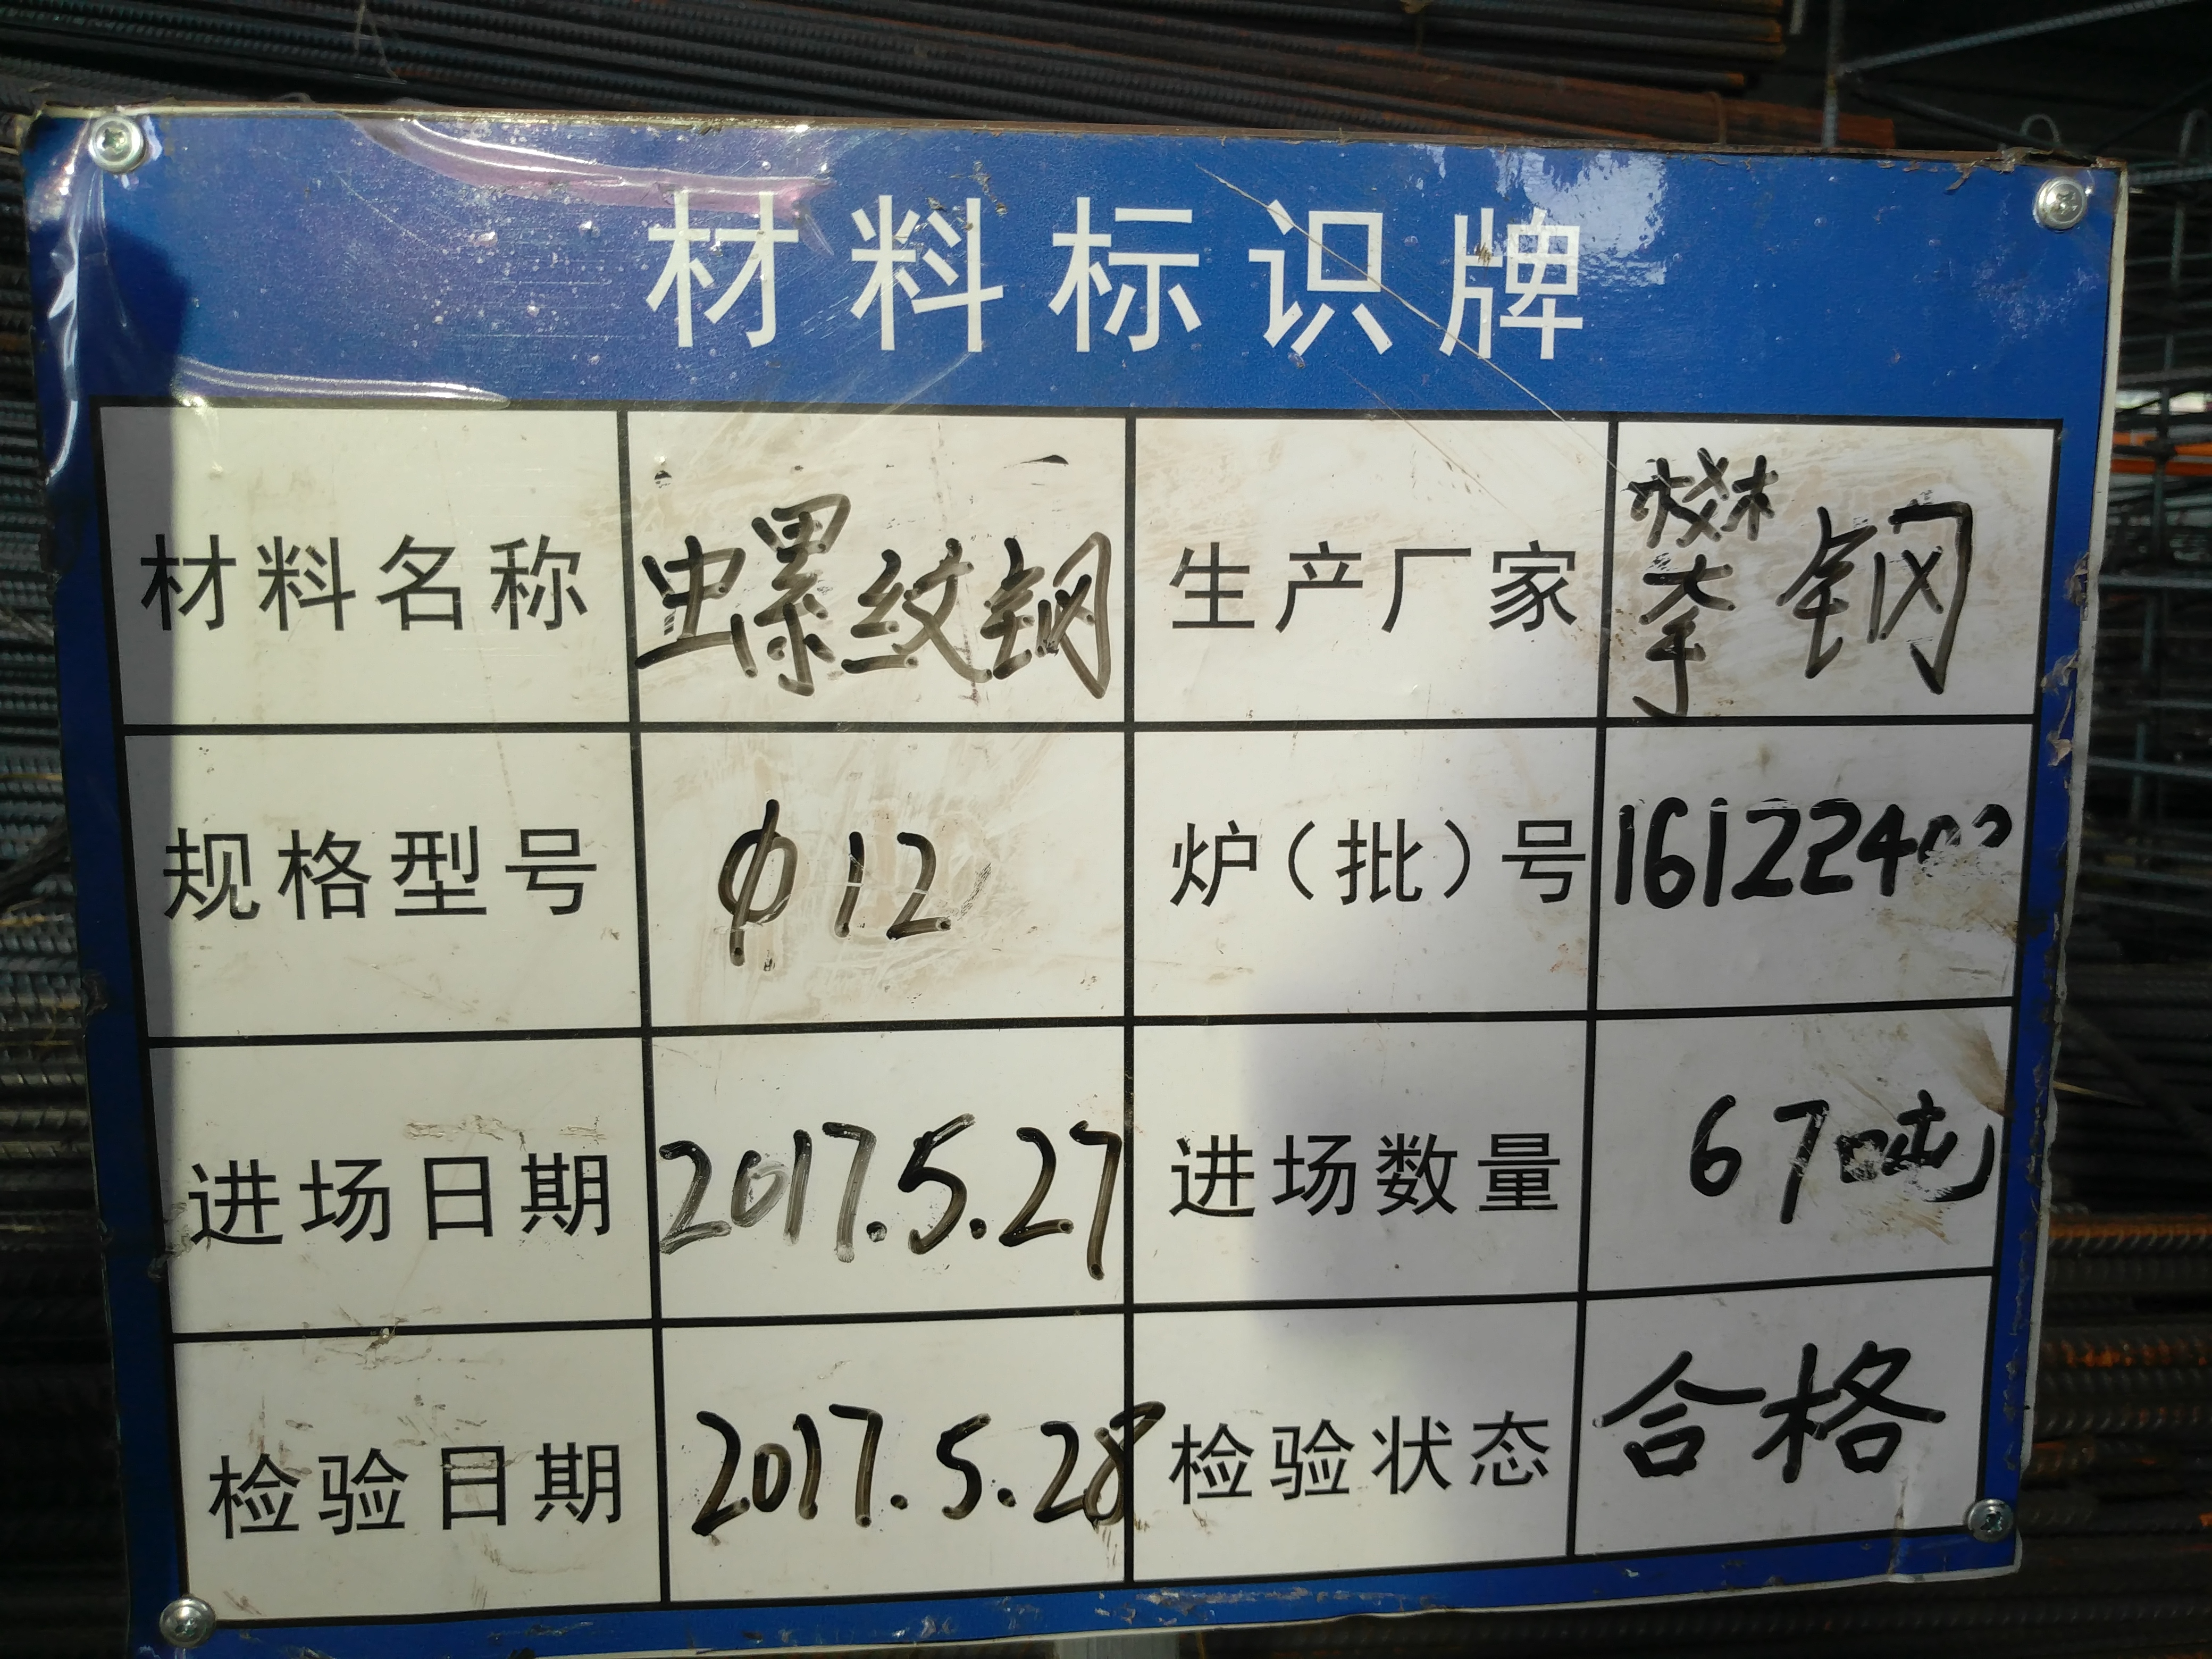 材料标识牌
材料名称 螺纹钢 生产厂家 攀钢
规格型号 φ12 炉（批）号
进场日期 2017.5.27 进场数量 67吨
检验日期 2017.5.28 检验状态 合格